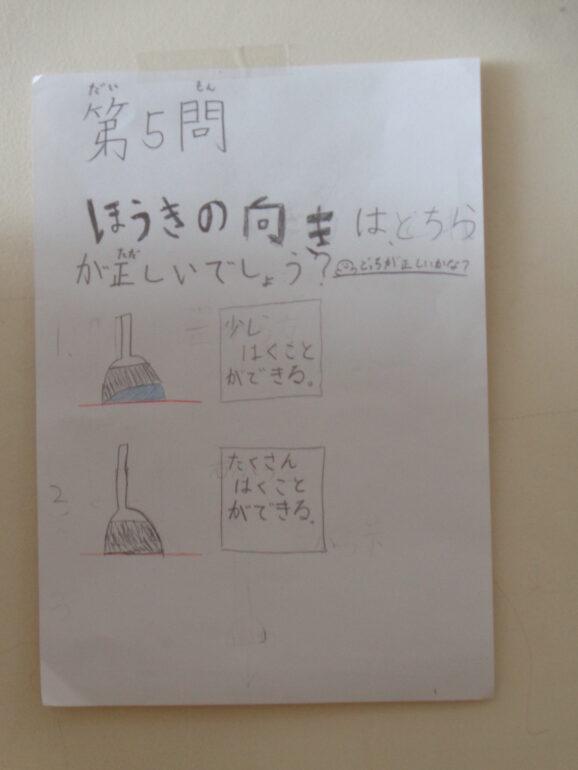 だい もん
第5問
ほうきの向きは、どちら
ただ
が正しいでしょう?どっちが正しいかな?
1.
少し
はくこと
ができる。
2
たくさん
はくこと
ができる。